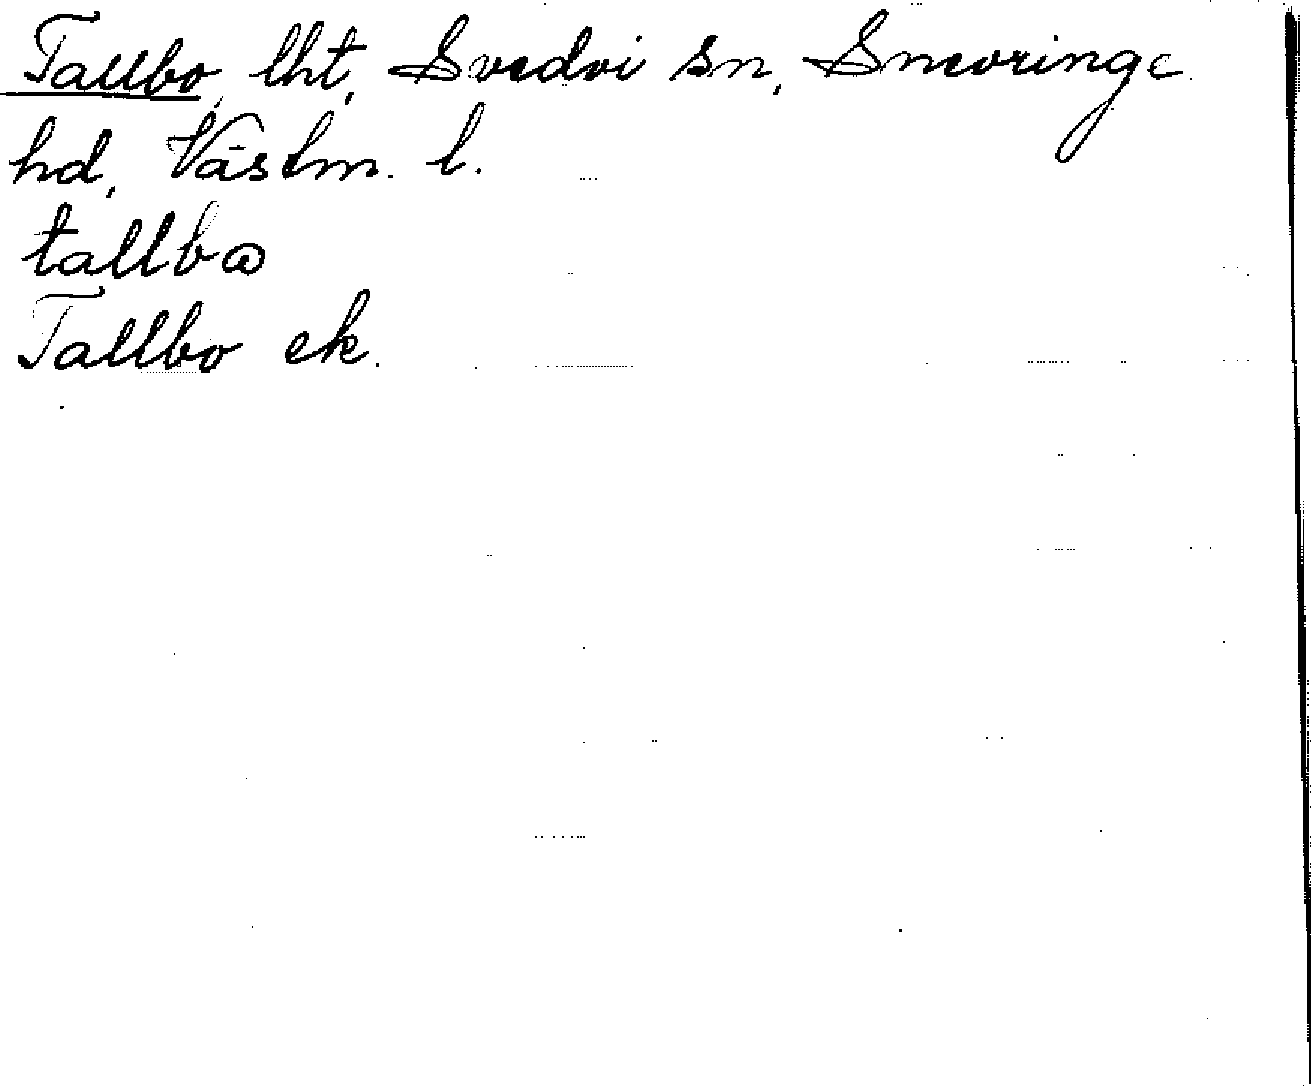 Tallbo, lht, Svedvi sn, Snevringe
hd, Västm. l.
tallbω
Tallbo ek.